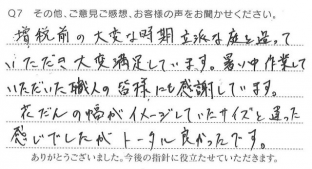 Q7 その他、ご意見ご感想、お客様の声をお聞かせください。
増税前の大変な時期立派な庭を造って
いただき大変満足しています。暑い中作業して
いただいた職人の皆様にも感謝しています。
花だんの幅がイメージしていたサイズと違った
感じでしたがトータル良かったです。
ありがとうございました。今後の指針に役立たせていただきます。